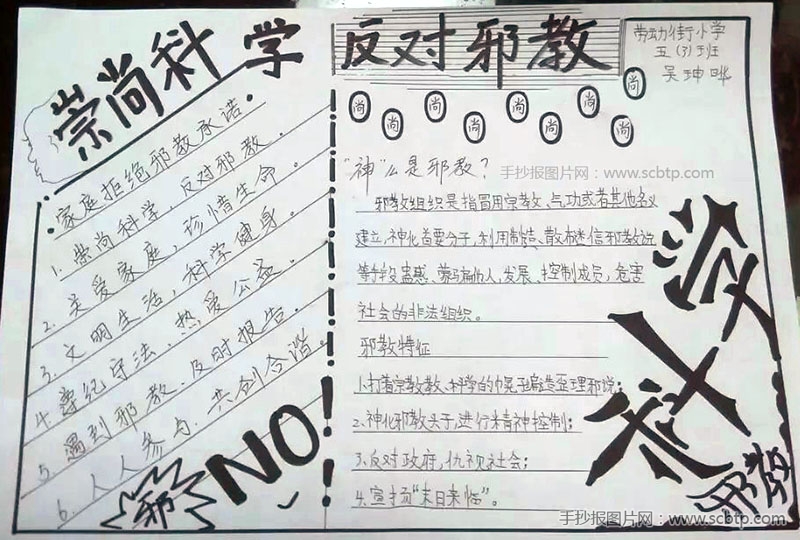 崇尚科学
反对邪教
劳动街小学
五(3)班
吴坤晔
家庭拒绝邪教承诺。
1. 崇尚科学，反对邪教。
2. 关爱家庭，珍惜生命。
3. 文明生活，科学健身。
4. 尊纪守法，热爱公益。
5. 遇到邪教，及时报告。
6. 人人参与，共创合谐。
邪 NO!
尚 尚 尚 尚 尚 尚 尚 尚 尚 尚
"神"么是邪教？
手抄报图片网：www.scbtp.com
邪教组织是指冒用宗教、气功或者其他名义
建立,神化首要分子,利用制造、散布迷信邪教说
等手段蛊惑、蒙骗他人,发展、控制成员,危害
社会的非法组织。
邪教特征
1.打着宗教教、科学的幌子编造歪理邪说；
2、神化邪教头子,进行精神控制；
3、反对政府,仇视社会；
4、宣扬"末日来临"。
科学
邪教
手抄报图片网：www.scbtp.com